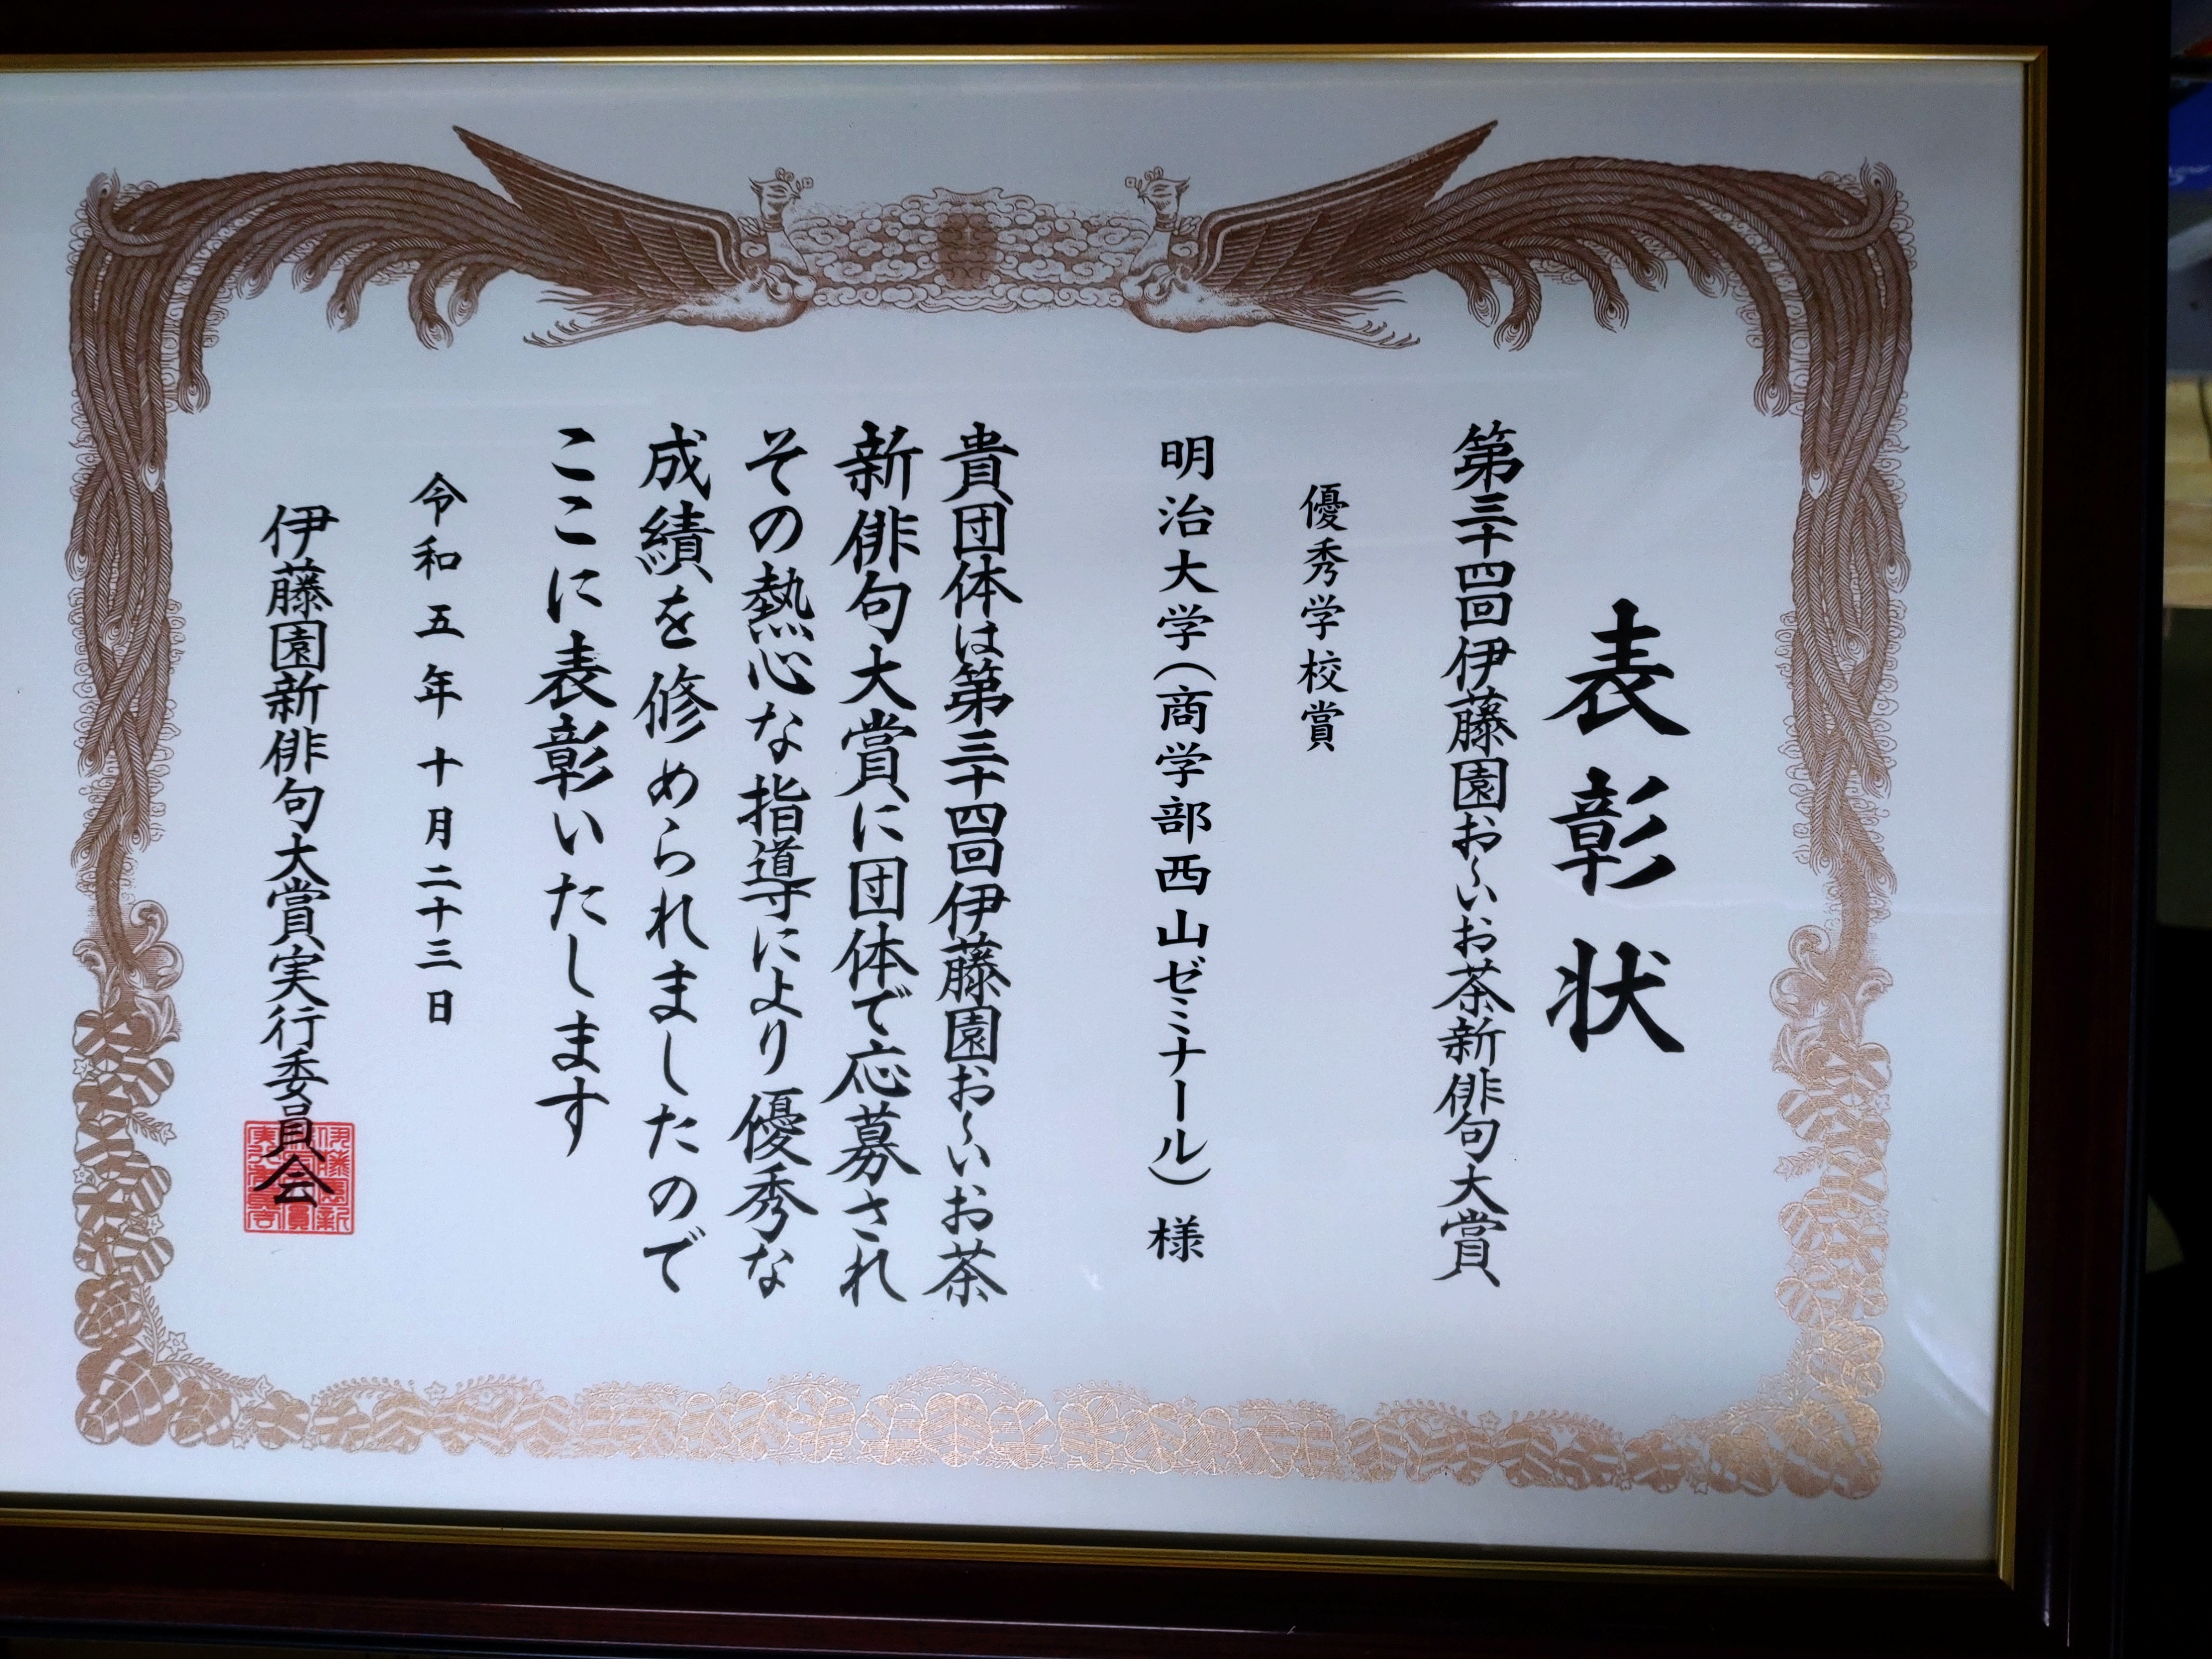 表彰状
第三十四回伊藤園お～いお茶新俳句大賞
優秀学校賞
明治大学(商学部西山ゼミナール)様
貴団体は第三十四回伊藤園お～いお茶
新俳句大賞に団体で応募され
その熱心な指導により優秀な
成績を修められましたので
ここに表彰いたします
令和五年十月二十三日
伊藤園新俳句大賞実行委員会